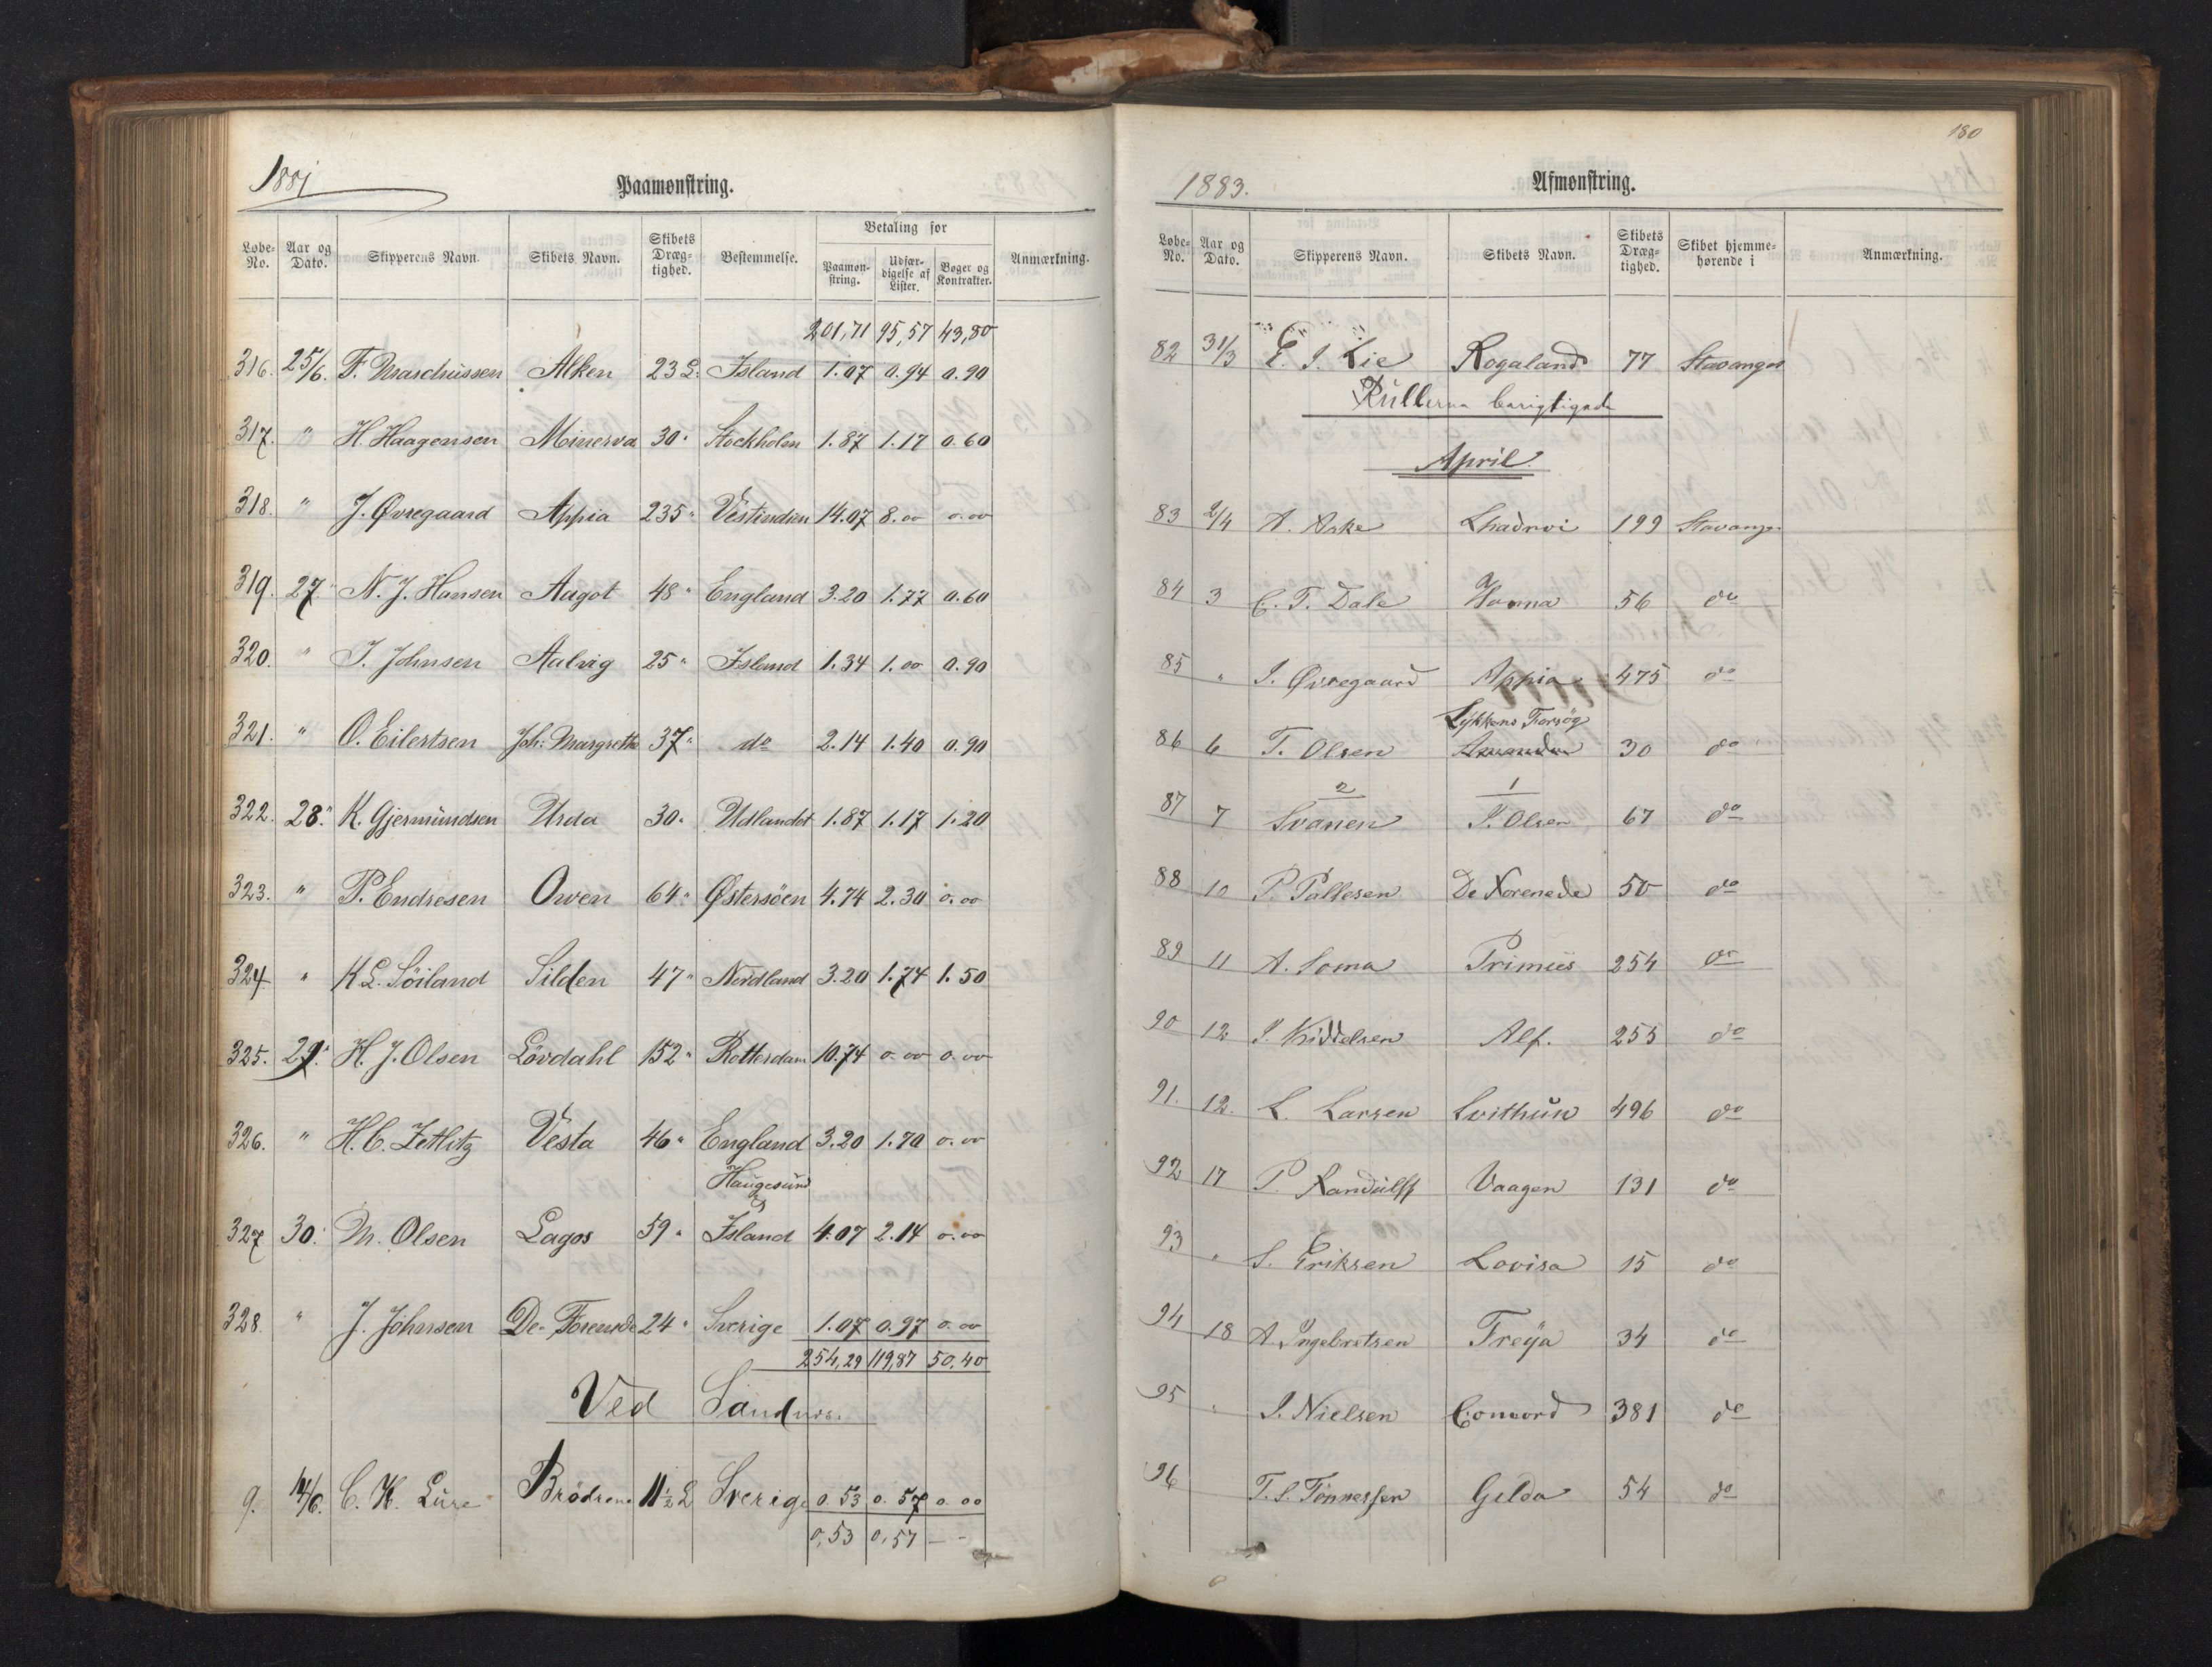 1881
Paamønstring.
Løbe-No. Aar og Dato. Skipperens Navn. Skibets Navn. Skibets Dræg-tighed. Bestemmelse. Betaling for Paamøn-string. Udfær-digelse af Lister. Bøger og Kontrakter. Anmærkning.
201,71 95,57 43,80
316. 25/6. F. Maschussen Alken 23 L. Island 1.07 0.94 0.90
317. " H. Haagensen Minerva 30 " Stockholm 1.87 1.17 0.60
318. " J. Øvregaard Appia 235 " Vestindien 14.07 8.00 0.00
319. 27 " N. J. Hansen Aagot 48 " England 3.20 1.77 0.60
320. " J. Johnsen Aalvig 25 " Island 1.34 1.00 0.90
321. " O. Eilertsen Joh: Margrethe 37 " do 2.14 1.40 0.90
322. 28. " K. Gjermundsen Urda 30 " Udlandet 1.87 1.17 1.20
323. " P. Endresen Owen 64 " Østersöen 4.74 2.30 0.00
324 " K L. Söiland Silden 47 " Nordland 3.20 1.74 1.50
325. 29. " H. J. Olsen Lövdahl 152 " Rotterdam 10.74 0.00 0.00
326. " H. C. Zetlitz Vesta 46 " England 3.20 1.70 0.00
Haugesund
327 30. M. Olsen Lagos 59 " & Island 4.07 2.14 0.00
328. " J. Johnsen De Forenede 24 " Sverige 1.07 0.97 0.00
254,29 119,87 50,40
Ved Sandnes.
9. 14/6. C. K. Lure Brödrene 11½ L Sverige 0.53 0.57 0.00
0,53 0,57 — -
180
1883.
Afmønstring.
Løbe-No. Aar og Dato. Skipperens Navn. Skibets Navn. Skibets Dræg-tighed. Skibet hjemme-hørende i Anmærkning.
82 31/3 E. J. Lie Rogaland 77 Stavanger
Rullerne berigtigede
April
83 2/4 A. Aske 199 Stavanger
84 3 C. T. Dale Hanna 56 do
85 " J. Øvregaard Appia 475 do
Lykkens Forsøg
86 6 T. Olsen Amanda 30 do
2 1
87 7 Svanen P. Olsen 67 do
88 10 P. Pallesen De Forenede 50 do
89 11 A. Soma Primus 254 do
90 12 J. Kiddelsen Alf. 255 do
91. 12. L. Larsen Svithun 496 do
92 17 P. Randulff Vaagen 131 do
93 " S. Eriksen Lovisa 15 do
94 18 A Ingebretsen Freÿa 34 do
95 " J. Nielsen Concord 381 do
96 T. S. Tönnessen Gilda 54 do